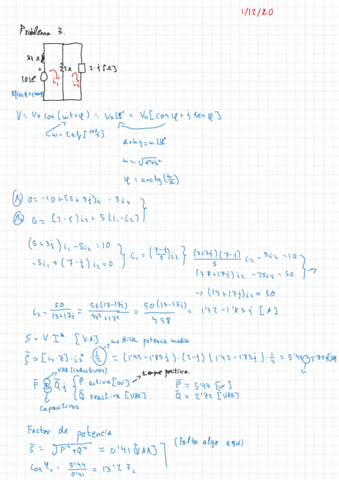 1/12/20
Problema 3.
5Ω
2-j [Ω]
10∠0°
i₁
i₂
V = V₀ cos(wt+φ) = V₀∠φ = V₀[cos φ + j sen φ]
a+bj = m∠φ
m = √a²+b²
φ = arctg(b/a)
① 0 = -10 + (5+3j)i₁ - 5i₂
② 0 = (2-j)i₂ + 5(i₂-i₁)
(5+3j)i₁ - 5i₂ = 10
-5i₁ + (7-j)i₂ = 0
i₁ = (7-j)/5 i₂
(5+3j)(7-j)/5 i₂ - 5i₂ = 10
(38+16j)i₂ - 25i₂ = 50
→ (13+17j)i₂ = 50
i₂ = 50/13+17j = 50(13-17j)/13²+17² = 50(13-17j)/458 = 1'42 - 1'85j [A]
S = V·I* [VA]
me dicen potencia media
(1/2) = (1'42-1'85j)·(2-j)(1'42+1'85j)·1/2 = 5'44
VAR (inductivos)
siempre positiva
P activa [W]
Q reactiva [VAR]
P = 5'44 [W]
Q = 2'72 [VAR]
Capacitivos
Factor de potencia
S = √P²+Q² = 0'41 [VA]
(Falta algo aquí)
cos φ = 5'44/0'41 = 13'2